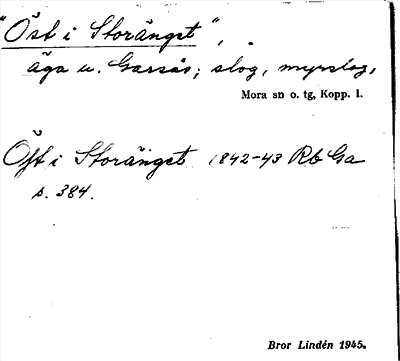 "Öst i Storänget",
äga u. Garsås; slog, myrslog,
Mora sn o. tg, Kopp. l.
Öst i Storänget 1842-43 Rb Ga
s. 384.
Bror Lindén 1945.